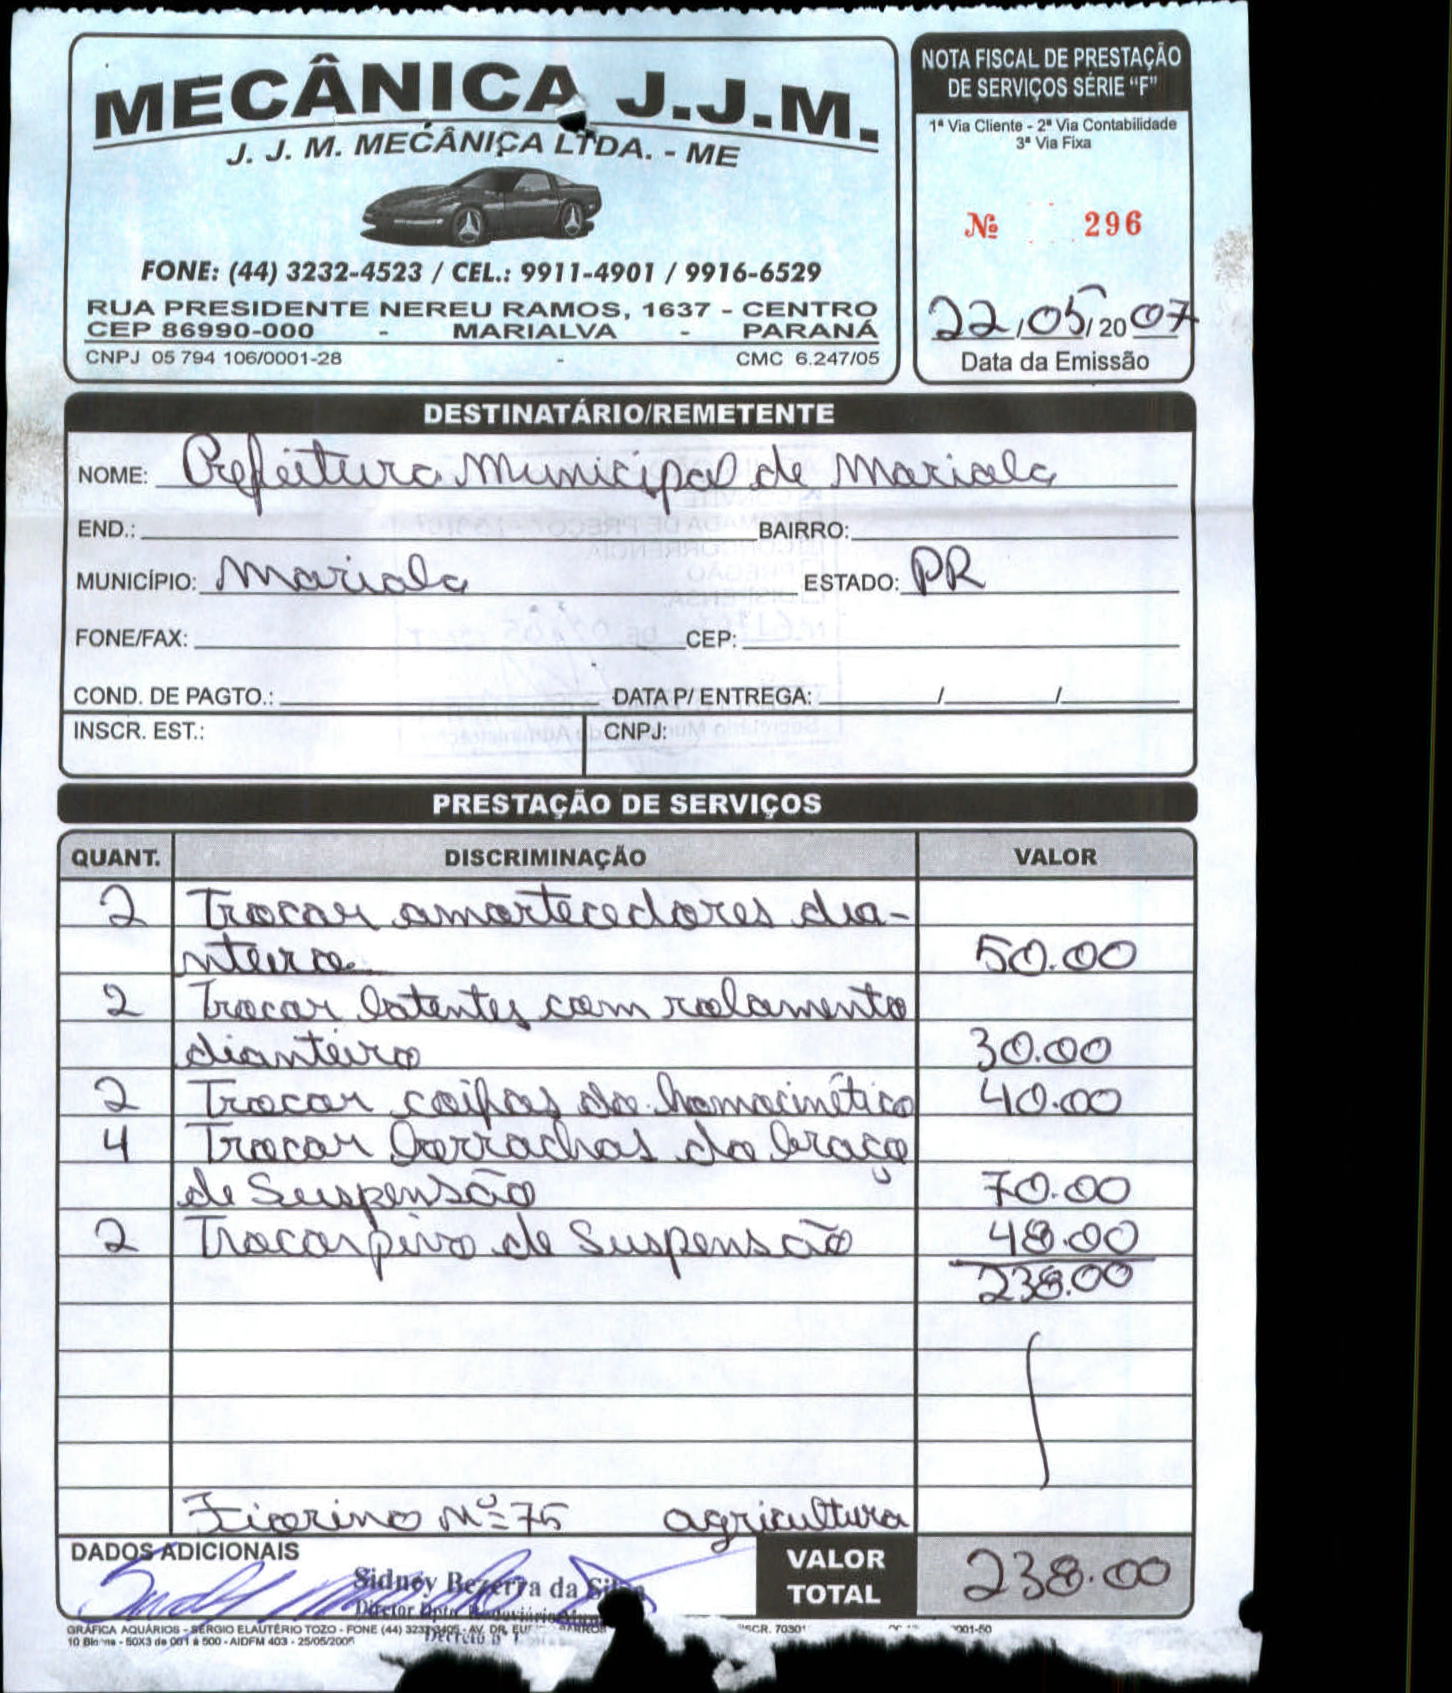 MECÂNICA J.J.M.
J. J. M. MECÂNICA LTDA. - ME
FONE: (44) 3232-4523 / CEL.: 9911-4901 / 9916-6529
RUA PRESIDENTE NEREU RAMOS, 1637 - CENTRO
CEP 86990-000 - MARIALVA - PARANÁ
CNPJ 05 794 106/0001-28 - CMC 6.247/05
NOTA FISCAL DE PRESTAÇÃO
DE SERVIÇOS SÉRIE "F"
1ª Via Cliente - 2ª Via Contabilidade
3ª Via Fixa
Nº 296
22/05/2007
Data da Emissão
DESTINATÁRIO/REMETENTE
NOME: Prefeitura Municipal de Marialva
END.: BAIRRO:
MUNICÍPIO: Marialva ESTADO: PR
FONE/FAX: CEP:
COND. DE PAGTO.: DATA P/ ENTREGA: / /
INSCR. EST.: CNPJ:
PRESTAÇÃO DE SERVIÇOS
QUANT. DISCRIMINAÇÃO VALOR
2 Trocar amortecedores dia-
nteiro 50.00
2 Trocar batentes com rolamento
dianteiro 30.00
2 Trocar coifas do homocinético 40.00
4 Trocar borrachas do braço
de Suspensão 70.00
2 Trocar pivo de Suspensão 48.00
238.00
Fiorino Nº 75 agricultura
DADOS ADICIONAIS
Sidney Bezerra da Silva
Diretor Dpto Rodoviário
Decreto nº
VALOR TOTAL 238.00
GRÁFICA AQUÁRIOS - SERGIO ELAUTÉRIO TOZO - FONE (44) - AV. DR.
10 Blocos - 50X3 de 001 à 500 - AIDFM 403 - 25/05/2006